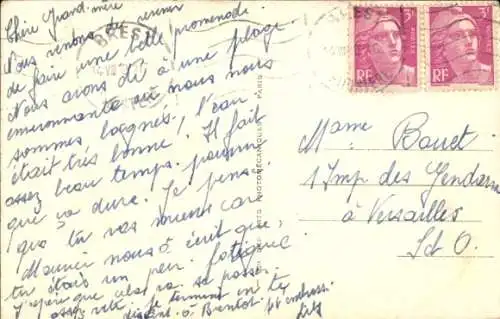 Chère Grand-mère
Nous venons de revenir
de faire une belle promenade.
Nous avons été à une plage
environnante où nous nous
sommes baignés! L'eau
était très bonne! Il fait
assez beau temps. pourvu
que ça dure. Je pense
que tu vas mieux car
Maurice nous a écrit que
tu étais un peu fatiguée
J'espère que cela va se passer
assez vite. Je termine en te
disant à Bientôt
BREST
3F
3F
RF
RF
POSTES
Mme Bouet
1 Imp des Gendarmes
à Versailles
S et O.
PARIS